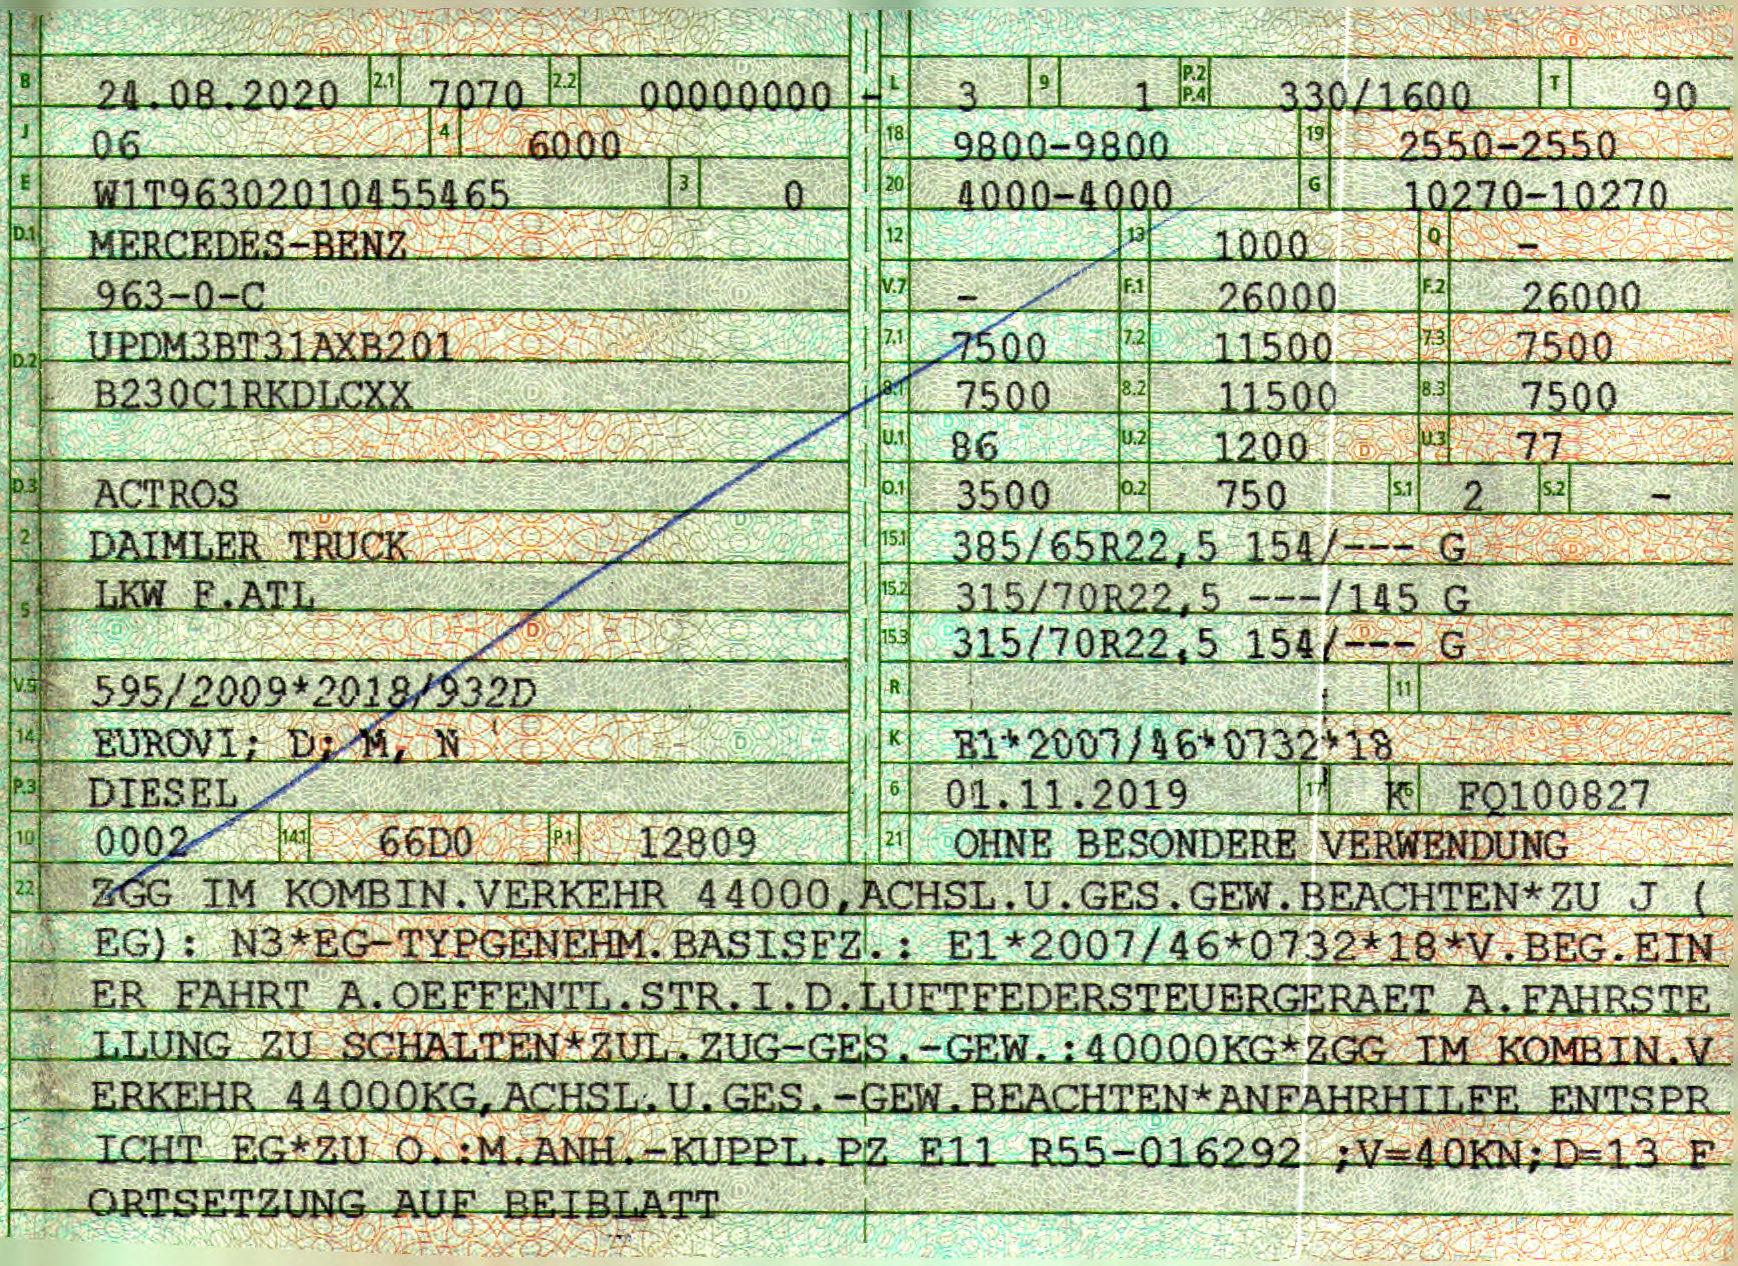 B 24.08.2020 2.1 7070 2.2 00000000 - L 3 9 1 P.2 P.4 330/1600 T 90
J 06 4 6000 18 9800-9800 19 2550-2550
E W1T96302010455465 3 0 20 4000-4000 G 10270-10270
D.1 MERCEDES-BENZ 12 13 1000 Q -
963-0-C V.7 - F.1 26000 F.2 26000
D.2 UPDM3BT31AXB201 7.1 7500 7.2 11500 7.3 7500
B230C1RKDLCXX 8.1 7500 8.2 11500 8.3 7500
U.1 86 U.2 1200 U.3 77
D.3 ACTROS O.1 3500 O.2 750 S.1 2 S.2 -
2 DAIMLER TRUCK 15.1 385/65R22,5 154/--- G
5 LKW F.ATL 15.2 315/70R22,5 ---/145 G
15.3 315/70R22,5 154/--- G
V.9 595/2009*2018/932D R 11
14 EUROVI; D; M, N K E1*2007/46*0732*18
P.3 DIESEL 6 01.11.2019 17 K 16 FQ100827
10 0002 14.1 66D0 P.1 12809 21 OHNE BESONDERE VERWENDUNG
22 ZGG IM KOMBIN.VERKEHR 44000,ACHSL.U.GES.GEW.BEACHTEN*ZU J (
EG): N3*EG-TYPGENEHM.BASISFZ.: E1*2007/46*0732*18*V.BEG.EIN
ER FAHRT A.OEFFENTL.STR.I.D.LUFTFEDERSTEUERGERAET A.FAHRSTE
LLUNG ZU SCHALTEN*ZUL.ZUG-GES.-GEW.:40000KG*ZGG IM KOMBIN.V
ERKEHR 44000KG,ACHSL.U.GES.-GEW.BEACHTEN*ANFAHRHILFE ENTSPR
ICHT EG*ZU O.:M.ANH.-KUPPL.PZ E11 R55-016292 ;V=40KN;D=13 F
ORTSETZUNG AUF BEIBLATT